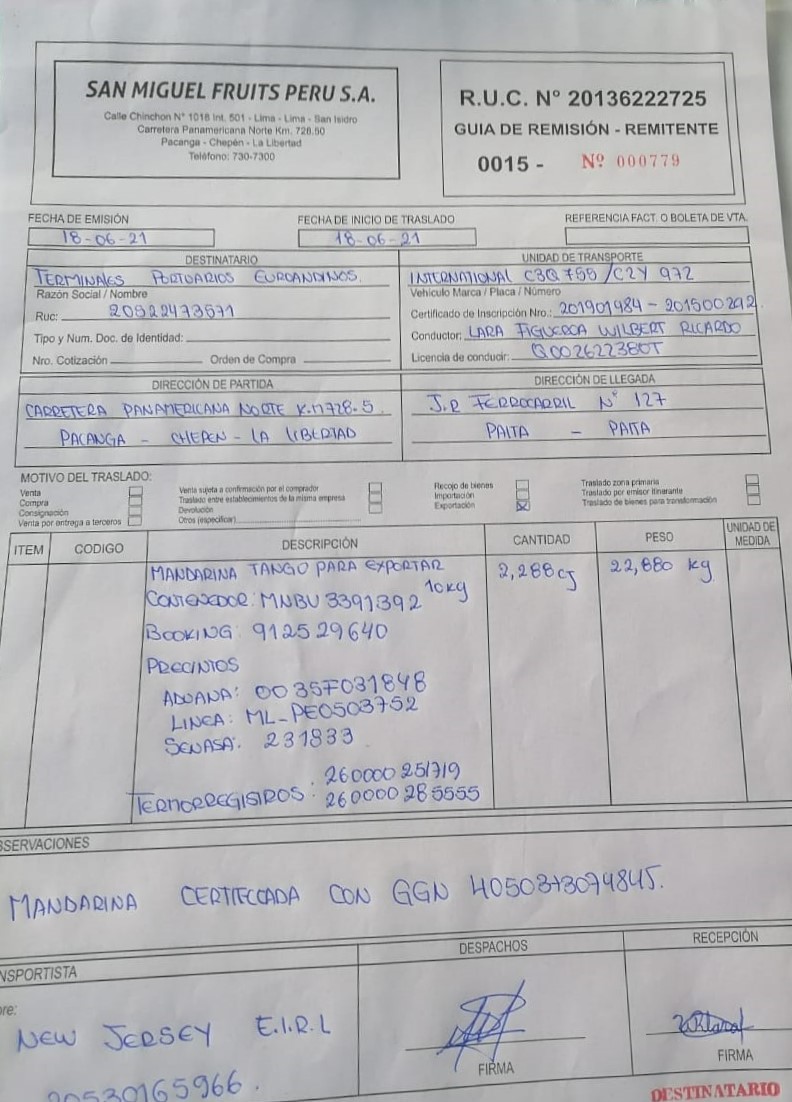 SAN MIGUEL FRUITS PERU S.A.
Calle Chinchon N° 1018 Int. 501 - Lima - Lima - San Isidro
Carretera Panamericana Norte Km. 728.50
Pacanga - Chepén - La Libertad
Teléfono: 730-7300
R.U.C. N° 20136222725
GUIA DE REMISIÓN - REMITENTE
0015 - Nº 000779
FECHA DE EMISIÓN
18-06-21
FECHA DE INICIO DE TRASLADO
18-06-21
REFERENCIA FACT. O BOLETA DE VTA.
DESTINATARIO
TERMINALES PORTUARIOS EUROANDINOS
Razón Social / Nombre
Ruc: 20522473571
Tipo y Num. Doc. de Identidad:
Nro. Cotización Orden de Compra
UNIDAD DE TRANSPORTE
INTERNATIONAL C3Q 755 / C2Y 972
Vehiculo Marca / Placa / Número
Certificado de Inscripción Nro.: 201901984 - 201500292
Conductor: LARA FIGUEROA WILBERT RICARDO
Licencia de conducir: Q0026223807
DIRECCIÓN DE PARTIDA
CARRETERA PANAMERICANA NORTE K.M728.5
PACANGA - CHEPEN - LA LIBERTAD
DIRECCIÓN DE LLEGADA
J.R FERROCARRIL N° 127
PAITA - PAITA
MOTIVO DEL TRASLADO:
Venta
Compra
Consignación
Venta por entrega a terceros
Venta sujeta a confirmación por el comprador
Traslado entre establecimientos de la misma empresa
Devolución
Otros (especificar)
Recojo de bienes
Importación
Exportación X
Traslado zona primaria
Traslado por emisor itinerante
Traslado de bienes para transformación
ITEM CODIGO DESCRIPCIÓN CANTIDAD PESO UNIDAD DE MEDIDA
MANDARINA TANGO PARA EXPORTAR 2,288 cj 22,880 kg
10kg
CONTENEDOR: MNBU 3391392
BOOKING: 912529640
PRECINTOS
ADUANA: 00357031848
LINEA: ML-PE0503752
SENASA: 231833
260000251719
TERMORREGISTROS: 260000285555
SERVACIONES
MANDARINA CERTIFCCADA CON GGN 4050373094845.
NSPORTISTA
re:
NEW JERSEY E.I.R.L
20530165966.
DESPACHOS
FIRMA
RECEPCIÓN
FIRMA
DESTINATARIO